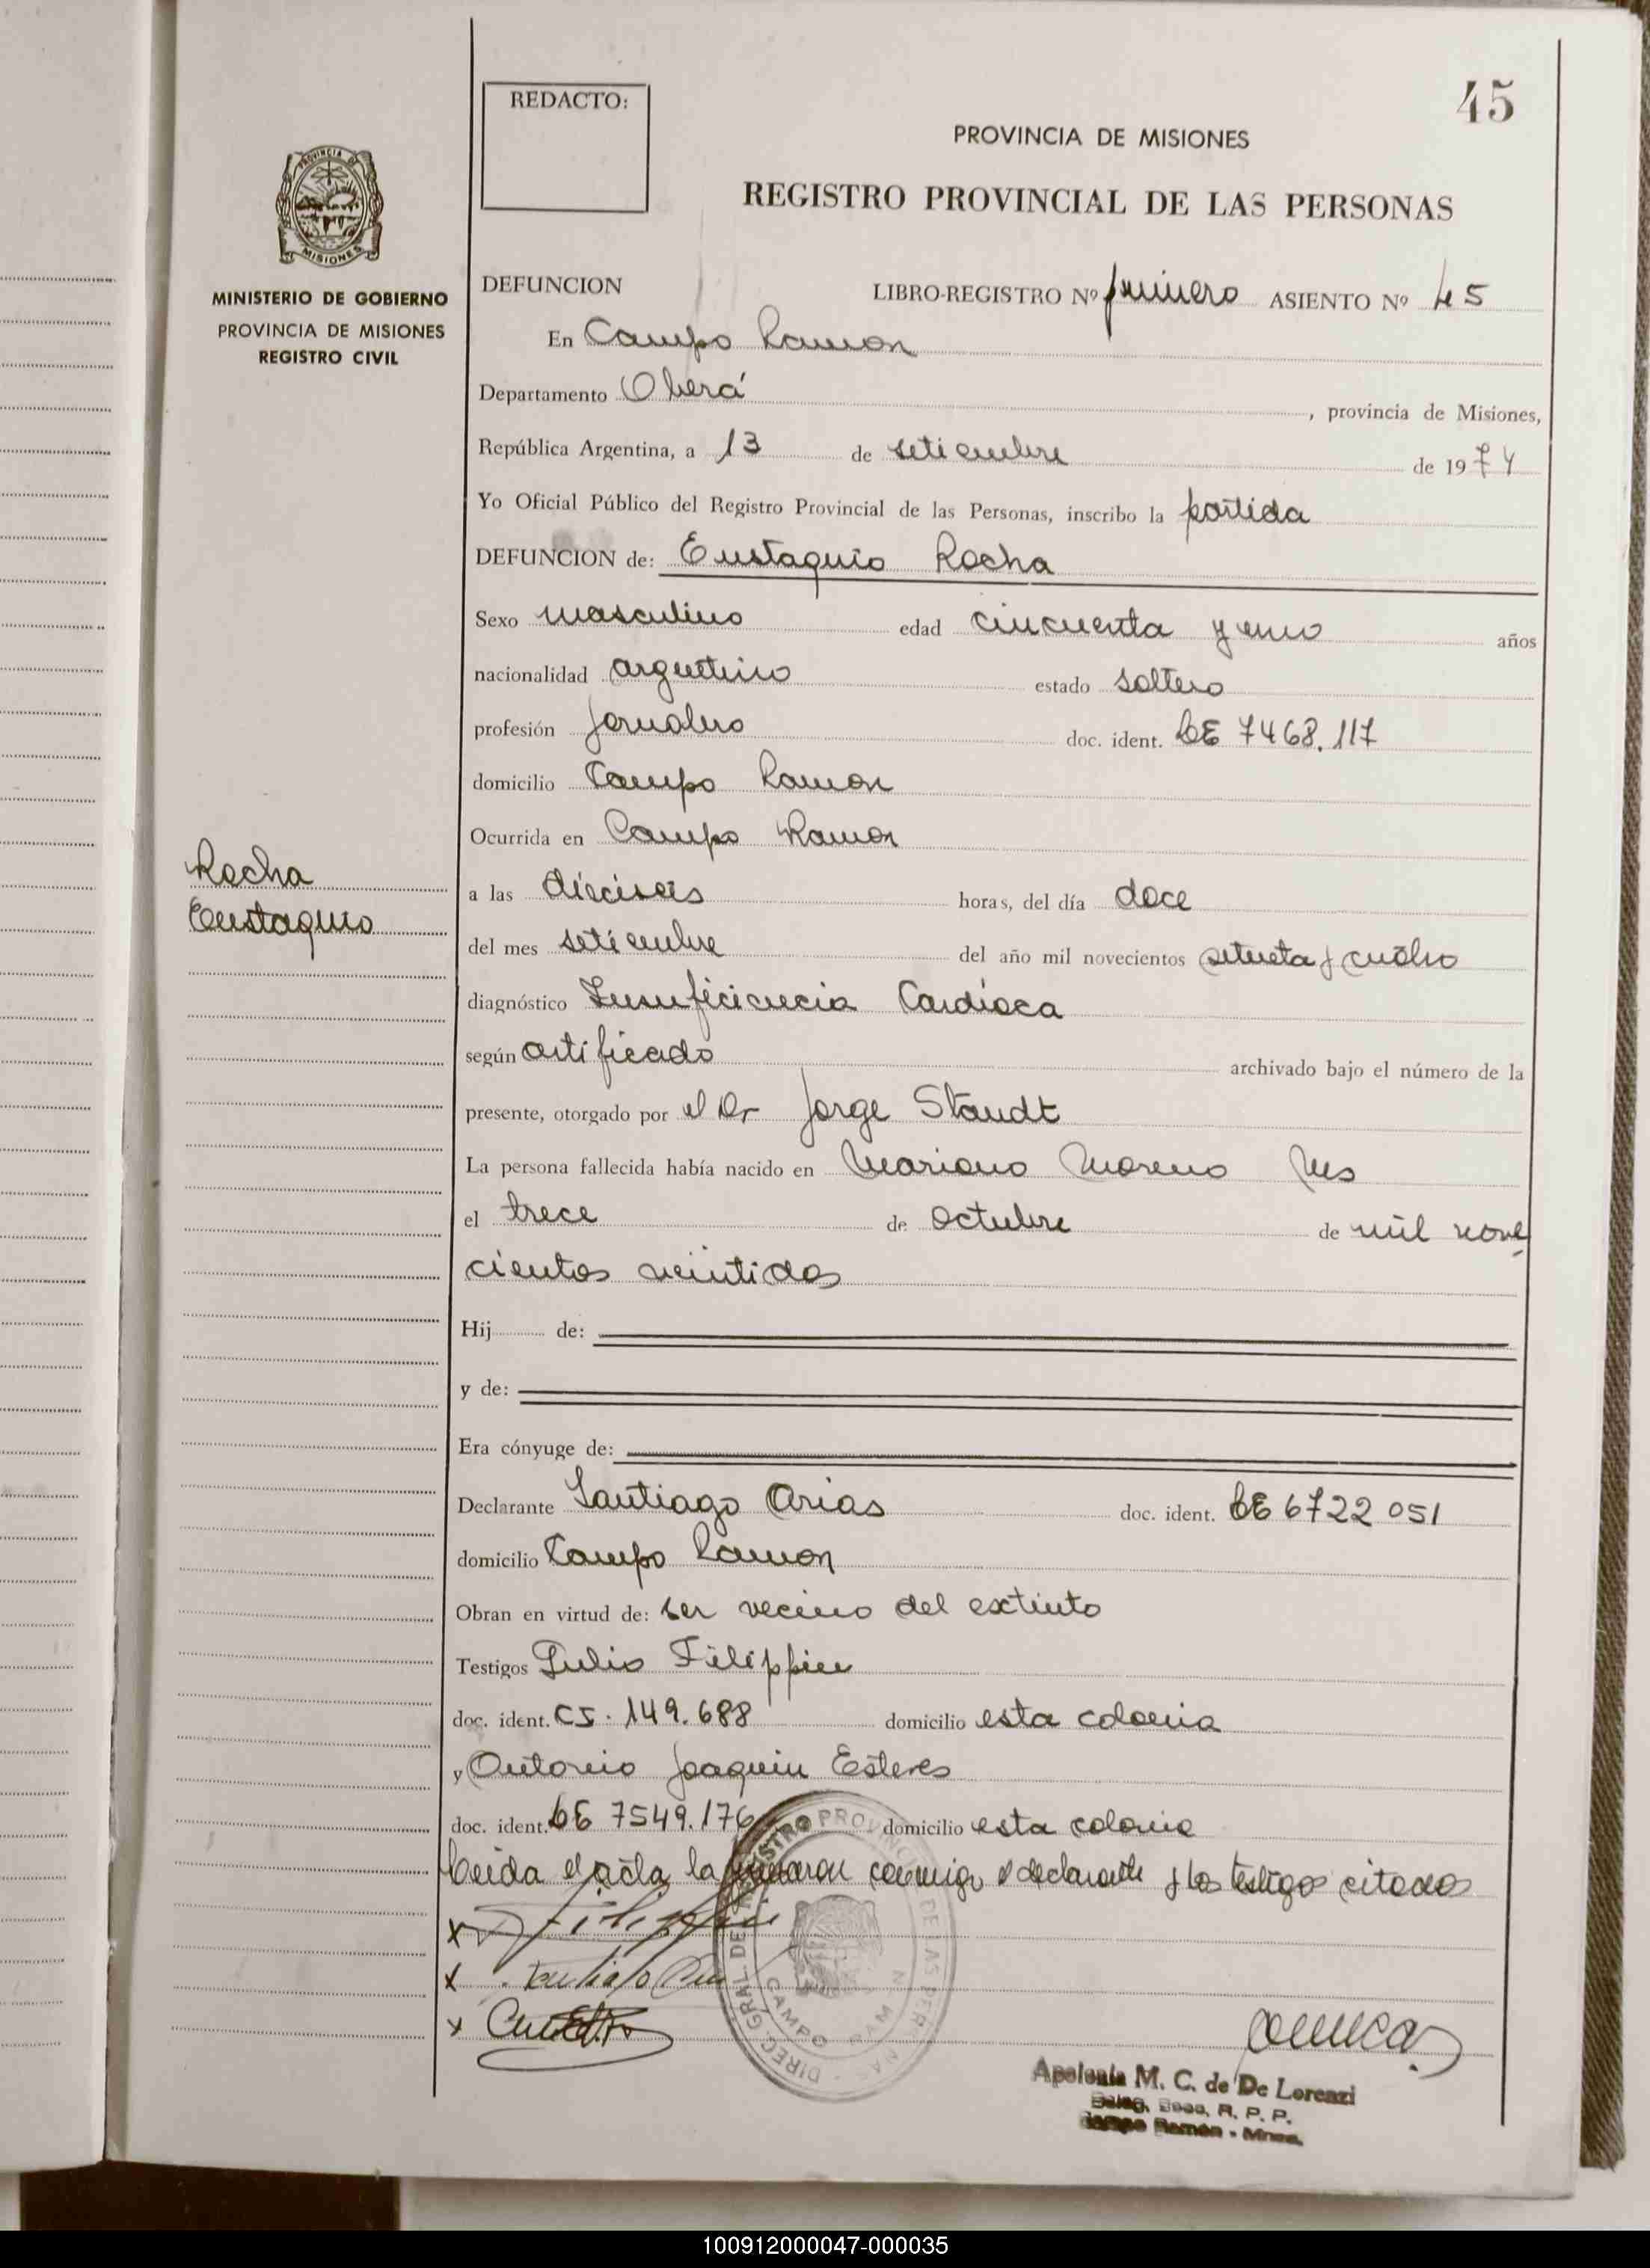 45
REDACTO:
PROVINCIA DE MISIONES
REGISTRO PROVINCIAL DE LAS PERSONAS
PROVINCIA DE
MISIONES
MINISTERIO DE GOBIERNO
PROVINCIA DE MISIONES
REGISTRO CIVIL
DEFUNCION LIBRO-REGISTRO Nº primero ASIENTO Nº 45
En Campo Ramon
Departamento Oberá , provincia de Misiones,
República Argentina, a 13 de setiembre de 1974
Yo Oficial Público del Registro Provincial de las Personas, inscribo la partida
DEFUNCION de: Eustaquio Rocha
Sexo masculino edad cincuenta y uno años
nacionalidad argentino estado soltero
profesión Jornalero doc. ident. LE 7468.117
domicilio Campo Ramon
Ocurrida en Campo Ramon
Rocha
Eustaquio
a las dieciseis horas, del día doce
del mes setiembre del año mil novecientos setenta y cuatro
diagnóstico Insuficiencia Cardíaca
según certificado archivado bajo el número de la
presente, otorgado por el Dr Jorge Staudt
La persona fallecida había nacido en Mariano Moreno Mes
el trece de octubre de mil nove
cientos veintidos
Hij de:
y de:
Era cónyuge de:
Declarante Santiago Arias doc. ident. LE 6722 051
domicilio Campo Ramon
Obran en virtud de: ser vecino del extinto
Testigos Julio Filippin
doc. ident. CI. 149.688 domicilio esta colonia
y Antonio Joaquin Esteves
doc. ident. LE 7549.176 domicilio esta colonia
Leida el acta la firmaron conmigo el declarante y los testigos citados
x
x
x
DIREC. GRAL. DE REGISTRO PROVINCIAL DE LAS PERSONAS
CAMPO RAMON
Apolonia M. C. de De Lorenzi
Deleg. R. P. P.
Campo Ramón - Mnes.
100912000047-000035